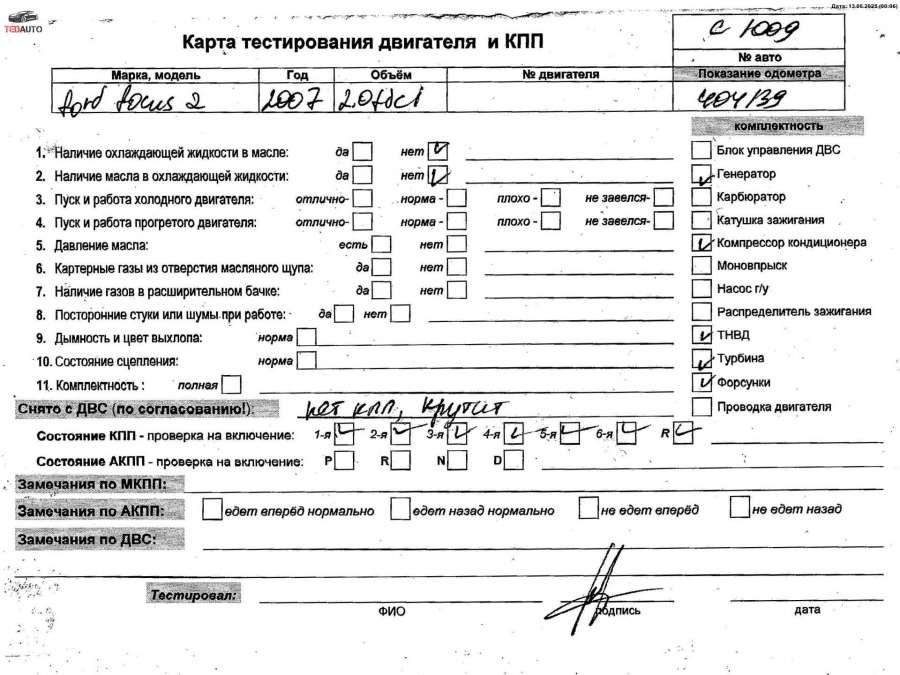 Дата: 13.06.2025 (00:06)
TEDAUTO
Карта тестирования двигателя и КПП
С 1009
№ авто
Марка, модель Год Объём № двигателя Показание одометра
ford focus 2 2007 2.0tdci 404139
комплектность
1. Наличие охлаждающей жидкости в масле: да нет ✓
2. Наличие масла в охлаждающей жидкости: да нет ✓
3. Пуск и работа холодного двигателя: отлично- норма - плохо - не завелся-
4. Пуск и работа прогретого двигателя: отлично- норма - плохо - не завелся-
5. Давление масла: есть нет
6. Картерные газы из отверстия масляного щупа: да нет
7. Наличие газов в расширительном бачке: да нет
8. Посторонние стуки или шумы при работе: да нет
9. Дымность и цвет выхлопа: норма
10. Состояние сцепления: норма
11. Комплектность : полная
Блок управления ДВС
✓ Генератор
Карбюратор
Катушка зажигания
✓ Компрессор кондиционера
Моновпрыск
Насос г/у
Распределитель зажигания
✓ ТНВД
✓ Турбина
✓ Форсунки
Проводка двигателя
Снято с ДВС (по согласованию!): нет кпп, крутит
Состояние КПП - проверка на включение: 1-я ✓ 2-я ✓ 3-я ✓ 4-я ✓ 5-я ✓ 6-я ✓ R ✓
Состояние АКПП - проверка на включение: P R N D
Замечания по МКПП:
Замечания по АКПП: едет вперёд нормально едет назад нормально не едет вперёд не едет назад
Замечания по ДВС:
Тестировал:
ФИО подпись дата